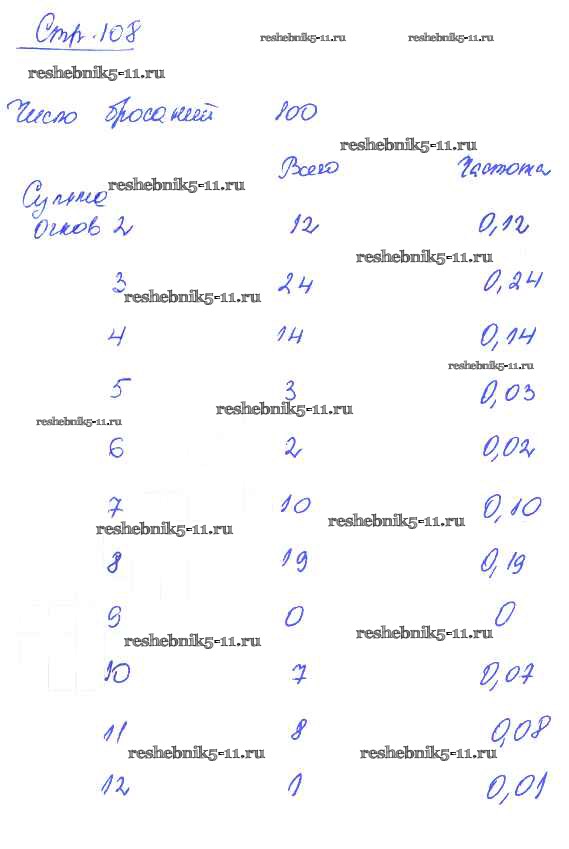 Стр. 108
reshebnik5-11.ru reshebnik5-11.ru
reshebnik5-11.ru
Число бросаний 100
reshebnik5-11.ru
Всего Частота
reshebnik5-11.ru
Сумма
очков 2 12 0,12
reshebnik5-11.ru
3 24 0,24
reshebnik5-11.ru
4 14 0,14
reshebnik5-11.ru
5 3 0,03
reshebnik5-11.ru
reshebnik5-11.ru
6 2 0,02
7 10 0,10
reshebnik5-11.ru reshebnik5-11.ru
8 19 0,19
9 0 0
reshebnik5-11.ru reshebnik5-11.ru
10 7 0,07
11 8 0,08
reshebnik5-11.ru reshebnik5-11.ru
12 1 0,01